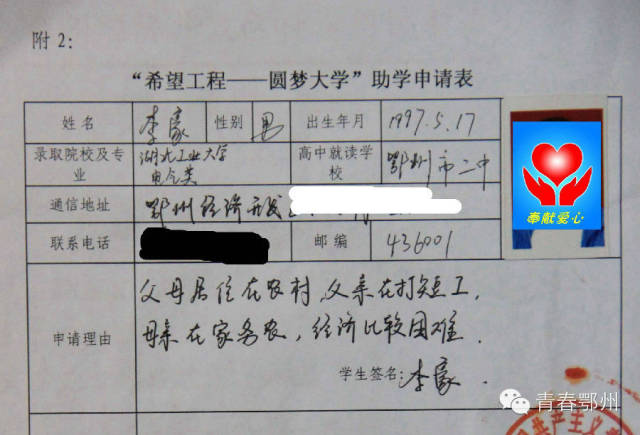 附 2：
“希望工程——圆梦大学”助学申请表
姓 名 李豪 性别 男 出生年月 1997.5.17
录取院校及专业 湖北工业大学 电气类 高中就读学校 鄂州市二中
奉献爱心
通信地址 鄂州经济开发
联系电话 邮 编 436001
申请理由 父母居住在农村，父亲在打短工，
母亲在家务农，经济比较困难.
学生签名：李豪.
青春鄂州
共产主义青